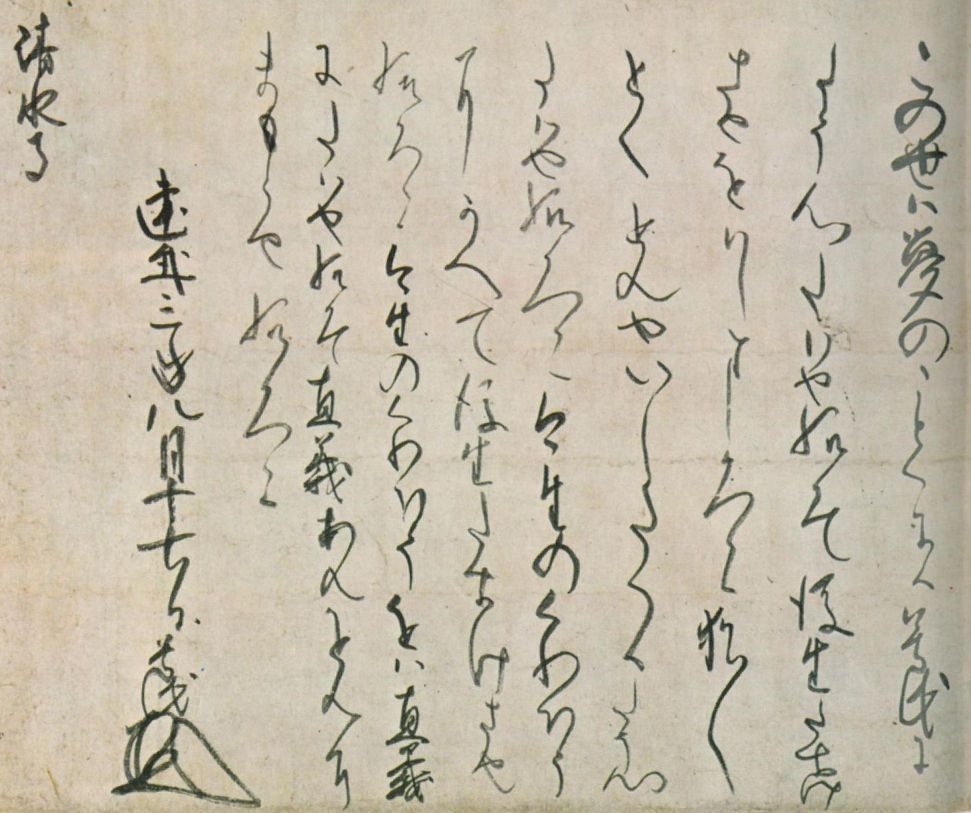 この世ハ夢のことくに候尊氏に
たう心たハせ給候て後生たすけ
させをハしまし候へく候猶々
とくとんせいしたく候たう心
たハせ給候へく候今生のくわほう
にかへて後生たすけさせ
給候へく候今生のくわほうをハ直義
にたハせ給候て直義あんおんに
まもらせ給候へく候
建武三年八月十七日 尊氏
清水寺